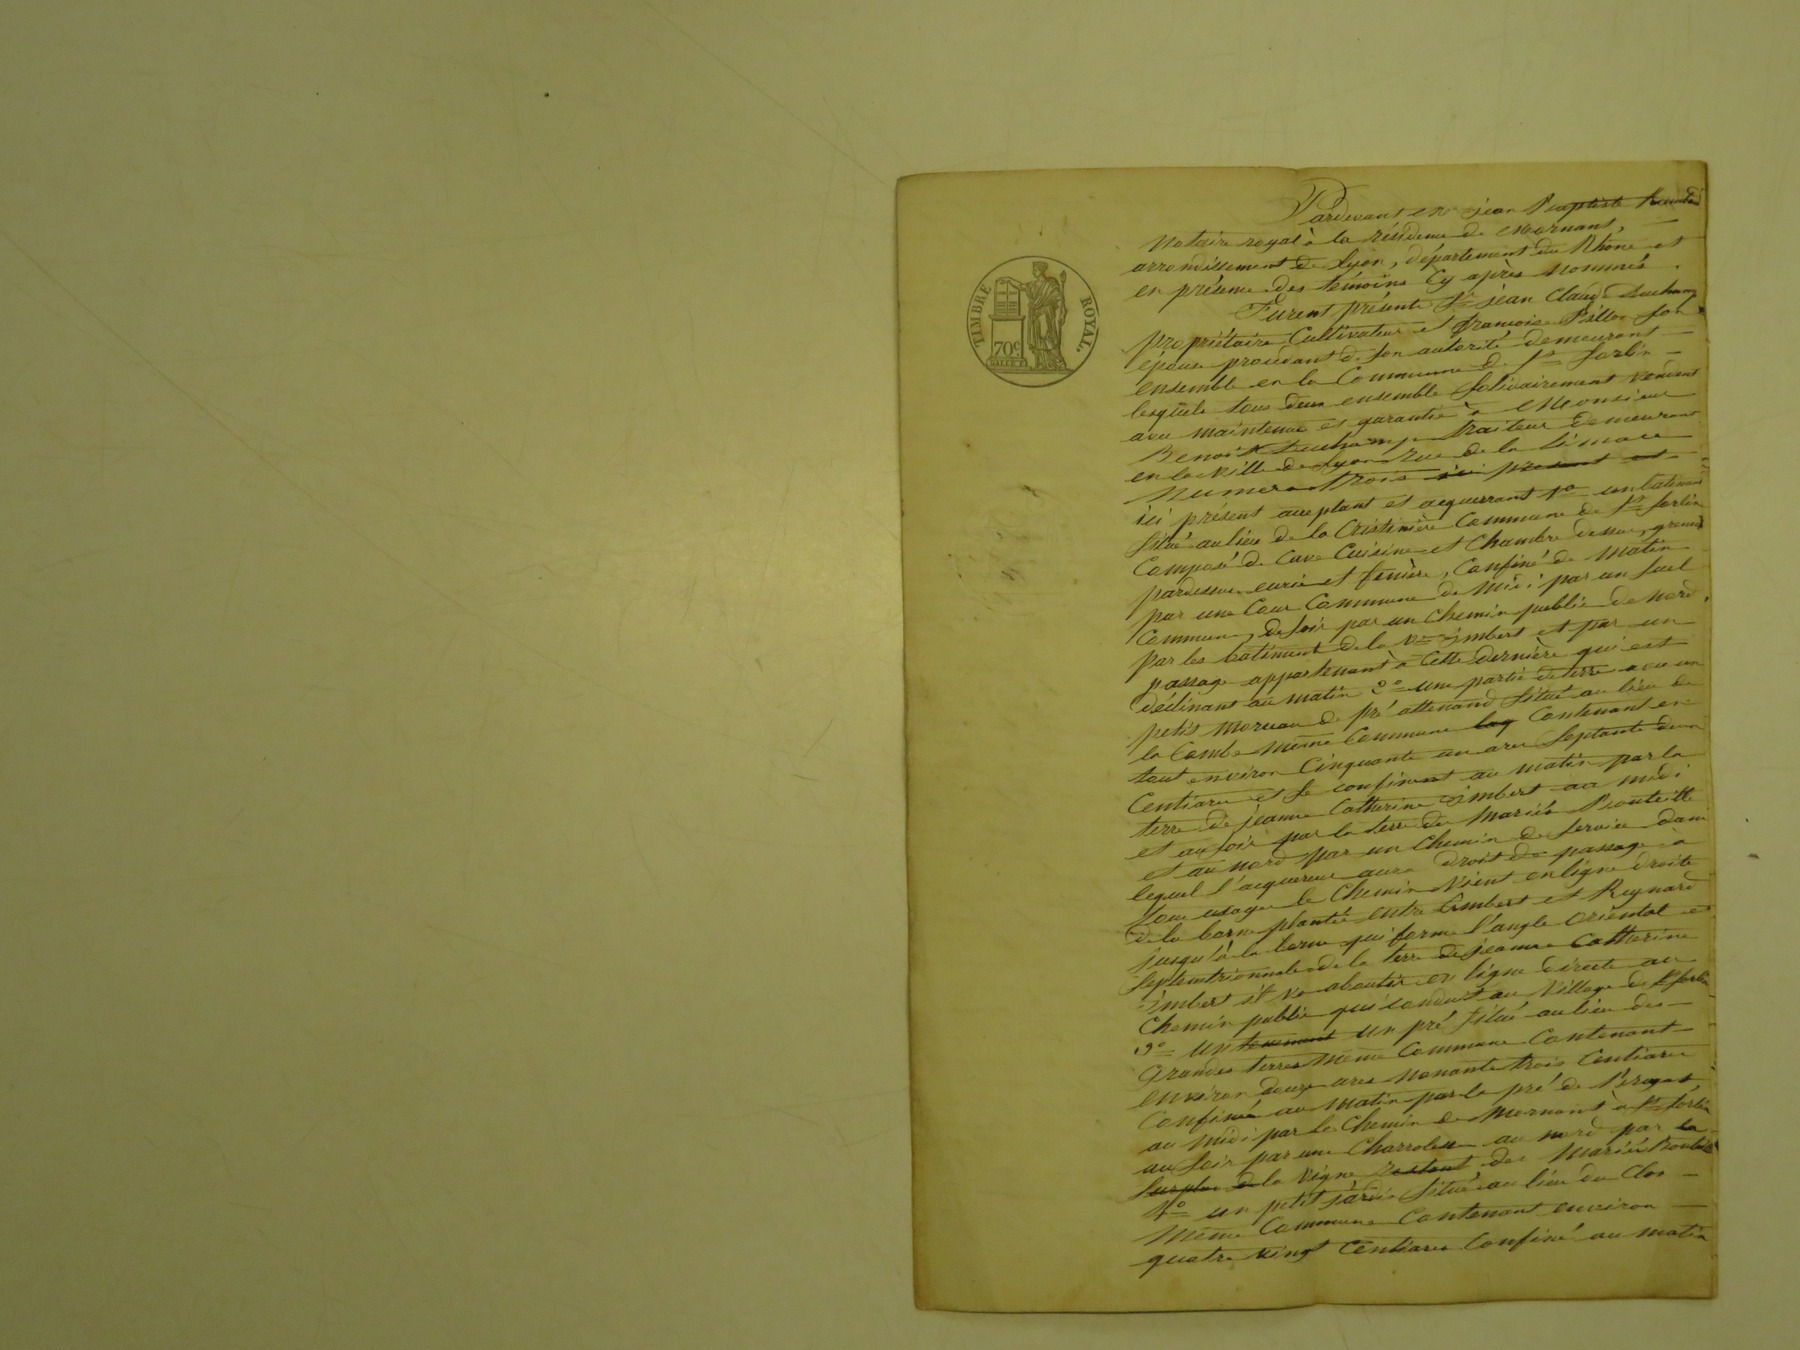 TIMBRE ROYAL.
70c
Pardevant Me jean Baptiste
Notaire royal à la résidence de Mornant,
arrondissement de Lyon, département du Rhône et
en présence des témoins Cy après nommés.
Furent présents Sr jean Claude Duchamp
propriétaire Cultivateur et françoise Pillon son
épouse procédant de son autorité demeurant
ensemble en la Commune de St Sorlin
lesquels tous deux ensemble solidairement vendent
avec maintenue et garantie à Monsieur
Benoit Duchamp traiteur demeurant
en la ville de Lyon rue de la Limace
Numero trois ici présent et
ici présent acceptant et acquerrant 1o un batiment
situé au lieu de la Cristinière Commune de St Sorlin
Composé de Cave Cuisine et Chambre dessus, grenier
pardessus, ecurie et feniere, Confiné de matin
par une Cour Commune de midi par un suel
Commun, de soir par un Chemin public de nord
par les batiment de la Ve imbert et par un
passage appartenant à Cette dernière qui est
déclinant au matin 2o une partie de terre avec un
petit morceau de pré attenand situé au lieu de
la Combe même Commune Contenant en
tout environ Cinquante un ares Septante deux
Centiares et se confinent au matin par la
terre de jeanne Catherine imbert au midi
et au soir par la terre des mariés Bouteille
et au nord par un Chemin de service dans
lequel l'acquereur aura droit de passage à
tous usages le Chemin vient en ligne droite
de la borne plantée entre imbert et Reynard
jusqu'à la borne qui forme l'angle oriental et
septentrionale de la terre de jeanne Catherine
imbert et va aboutir en ligne directe au
Chemin public qui conduit au village de St Sorlin
3o un tenement un pré situé au lieu des
Grandes terres même Commune Contenant
environ douze ares Nonante trois Centiares
Confiné au matin par le pré de
au midi par le Chemin de Mornant à St Sorlin
au soir par une Charriere au nord par la
surplus de la vigne restant des mariés Bouteille
4o un petit jardin situé au lieu du Clos
même Commune Contenant environ
quatre vingt Centiares Confiné au matin